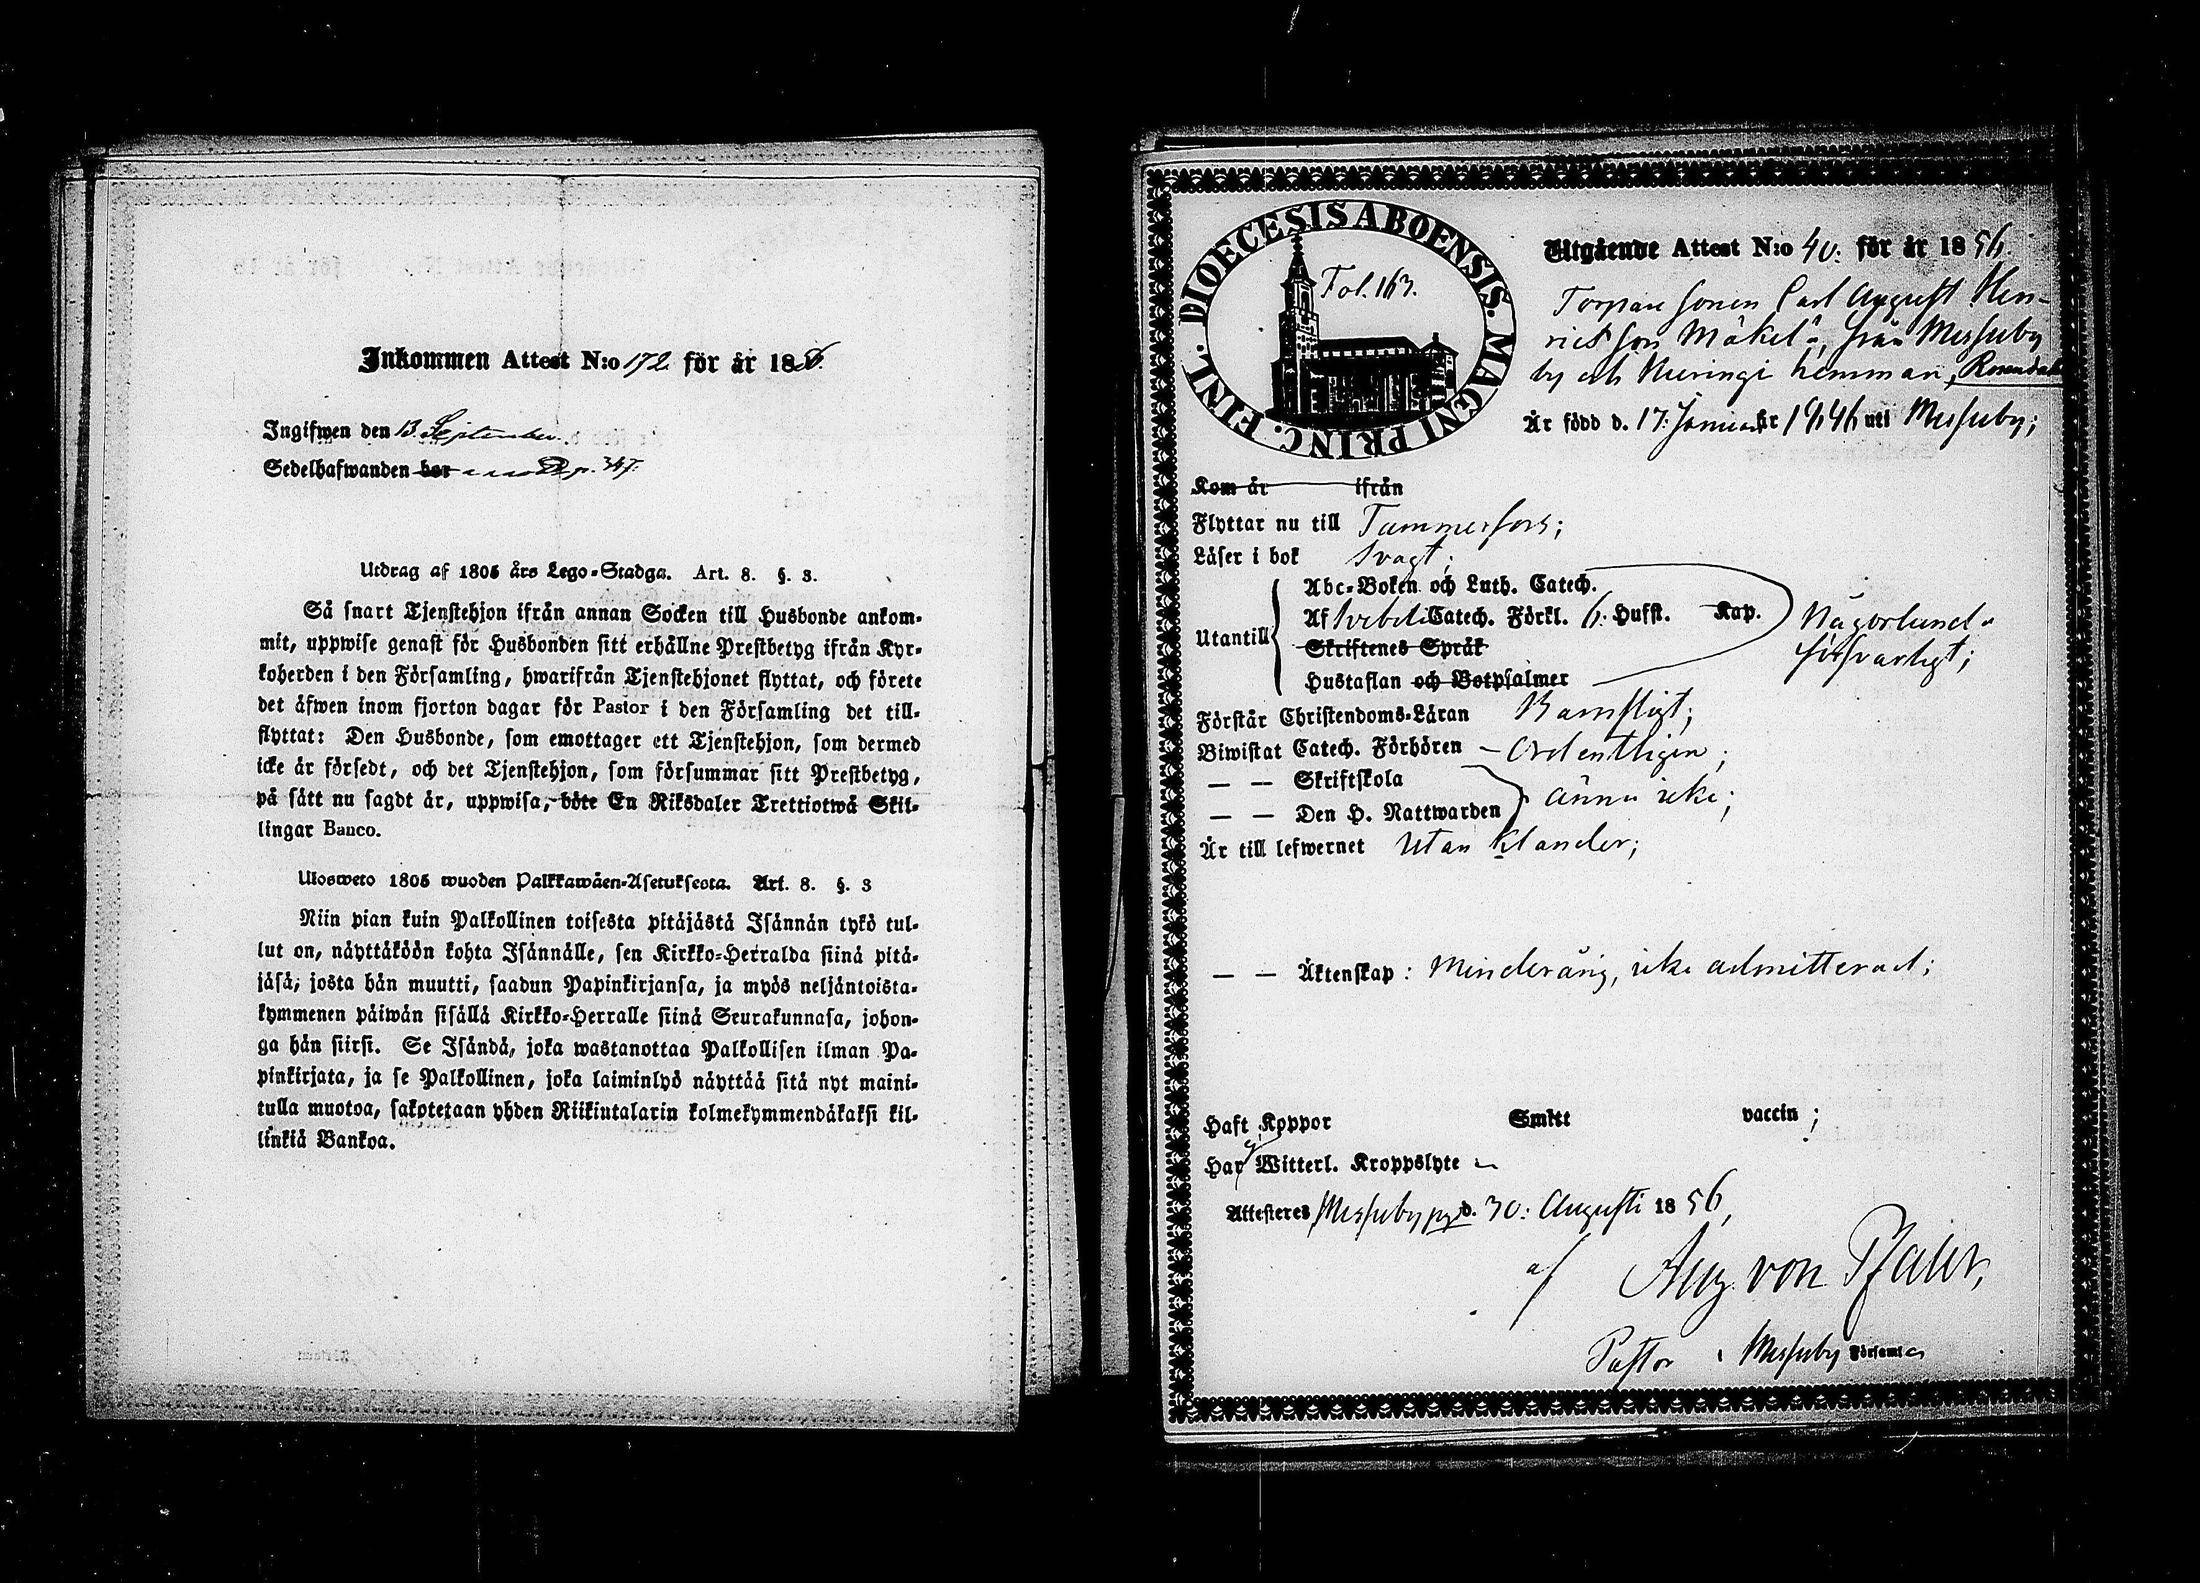 Inkommen Attest N:o 172 för år 1856.
Ingifwen den 13 September
Sedelhafwanden bor p. 347.
Utdrag af 1805 års Lego-Stadga. Art. 8. §. 3.
Så snart Tjenstehjon ifrån annan Socken till Husbonde ankom-
mit, uppwise genast för Husbonden sitt erhållne Prestbetyg ifrån Kyr-
koherden i den Församling, hwarifrån Tjenstehjonet flyttat, och förete
det äfwen inom fjorton dagar för Pastor i den Församling det till-
flyttat: Den Husbonde, som emottager ett Tjenstehjon, som dermed
icke är försedt, och det Tjenstehjon, som försummar sitt Prestbetyg,
på sätt nu sagdt är, uppwisa, böte En Riksdaler Trettiotwå Skil-
lingar Banco.
Ulosweto 1805 wuoden Palkkawäen-Asetuksesta. Art. 8. §. 3
Niin pian kuin Palkollinen toisesta pitäjästä Isännän tykö tul-
lut on, näyttäköön kohta Isännälle, sen Kirkko-Herralda siinä pitä-
jäsä, josta hän muutti, saadun Papinkirjansa, ja myös neljäntoista-
kymmenen päiwän sisällä Kirkko-Herralle siinä Seurakunnasa, johon-
ga hän siirsi. Se Isändä, joka wastanottaa Palkollisen ilman Pa-
pinkirjata, ja se Palkollinen, joka laiminlyö näyttää sitä nyt maini-
tulla muotoa, sakotetaan yhden Riikintalarin kolmekymmendäkaksi kil-
linkiä Bankoa.
DIOECESIS ABOENSIS. MAGNI PRINC. FINL.
Fol. 163.
Utgående Attest N:o 40: för år 1856.
Torpare sonen Carl August Hen-
ricsson Mäkelä, från Messuby
by och hemman, Rosendahl
Är född d. 17: Januari år 1846 uti Messuby;
Kom år ifrån
Flyttar nu till Tammerfors;
Läser i bok Svagt;
Utantill
Abc-Boken och Luth. Catech.
Af Svebelii Catech. Förkl. 6. Hufst. Kap.
Skriftenes Språk
Hustaflan och Botpsalmer
Någorlunda
försvarligt;
Förstår Christendoms-Läran Barnsligt;
Biwistat Catech. Förhören – Ordentligen;
— — Skriftskola
— — Den H. Nattwarden
ännu icke;
Är till lefwernet Utan klander;
— — Äktenskap: Minderårig, icke admitterad;
Haft Koppor Smitt vaccin;
Har Witterl. Kroppslyte
Attesteres Messuby d. 30: Augusti 1856,
af Aug. von Pfaler,
Pastor i Messuby Församl.